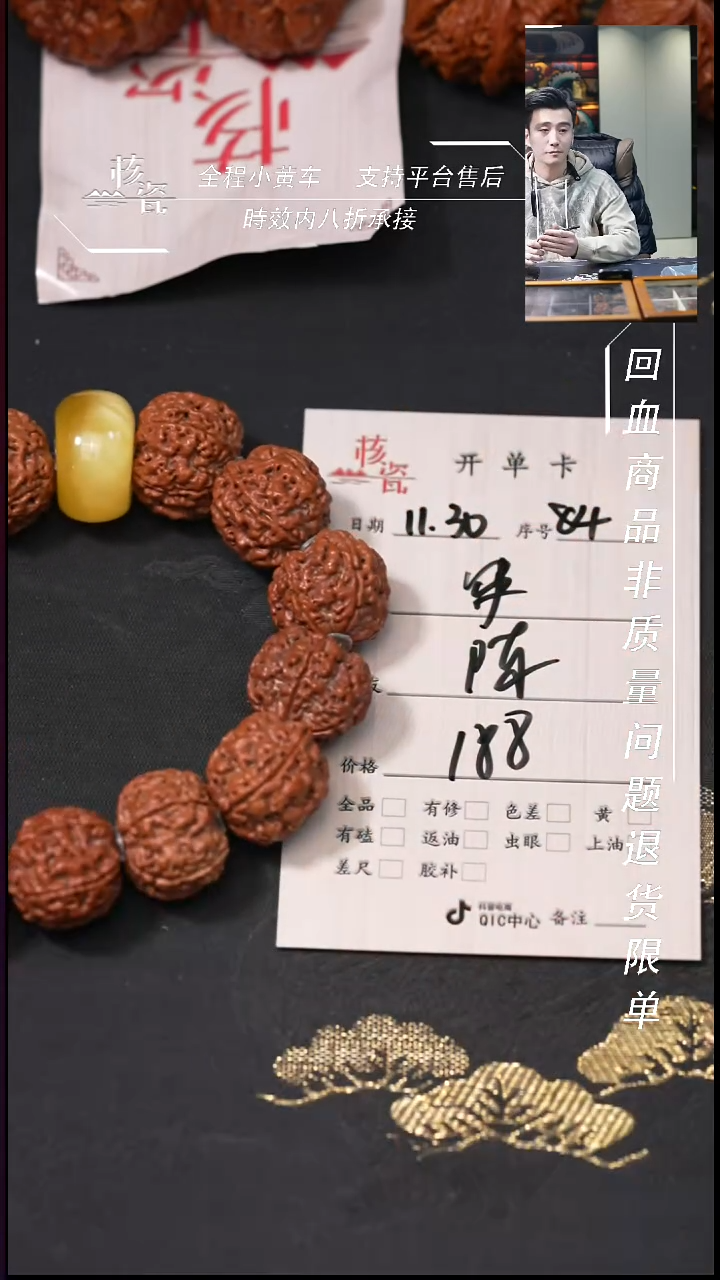 核瓷
核瓷
全程小黄车 支持平台售后
時效内八折承接
回血商品非质量问题退货限单
核瓷
开单卡
日期 11.30 序号 84
陈
价格 188
全品 有修 色差 黄
有磕 返油 虫眼 上油
差尺 胶补
抖音电商
QIC中心 备注